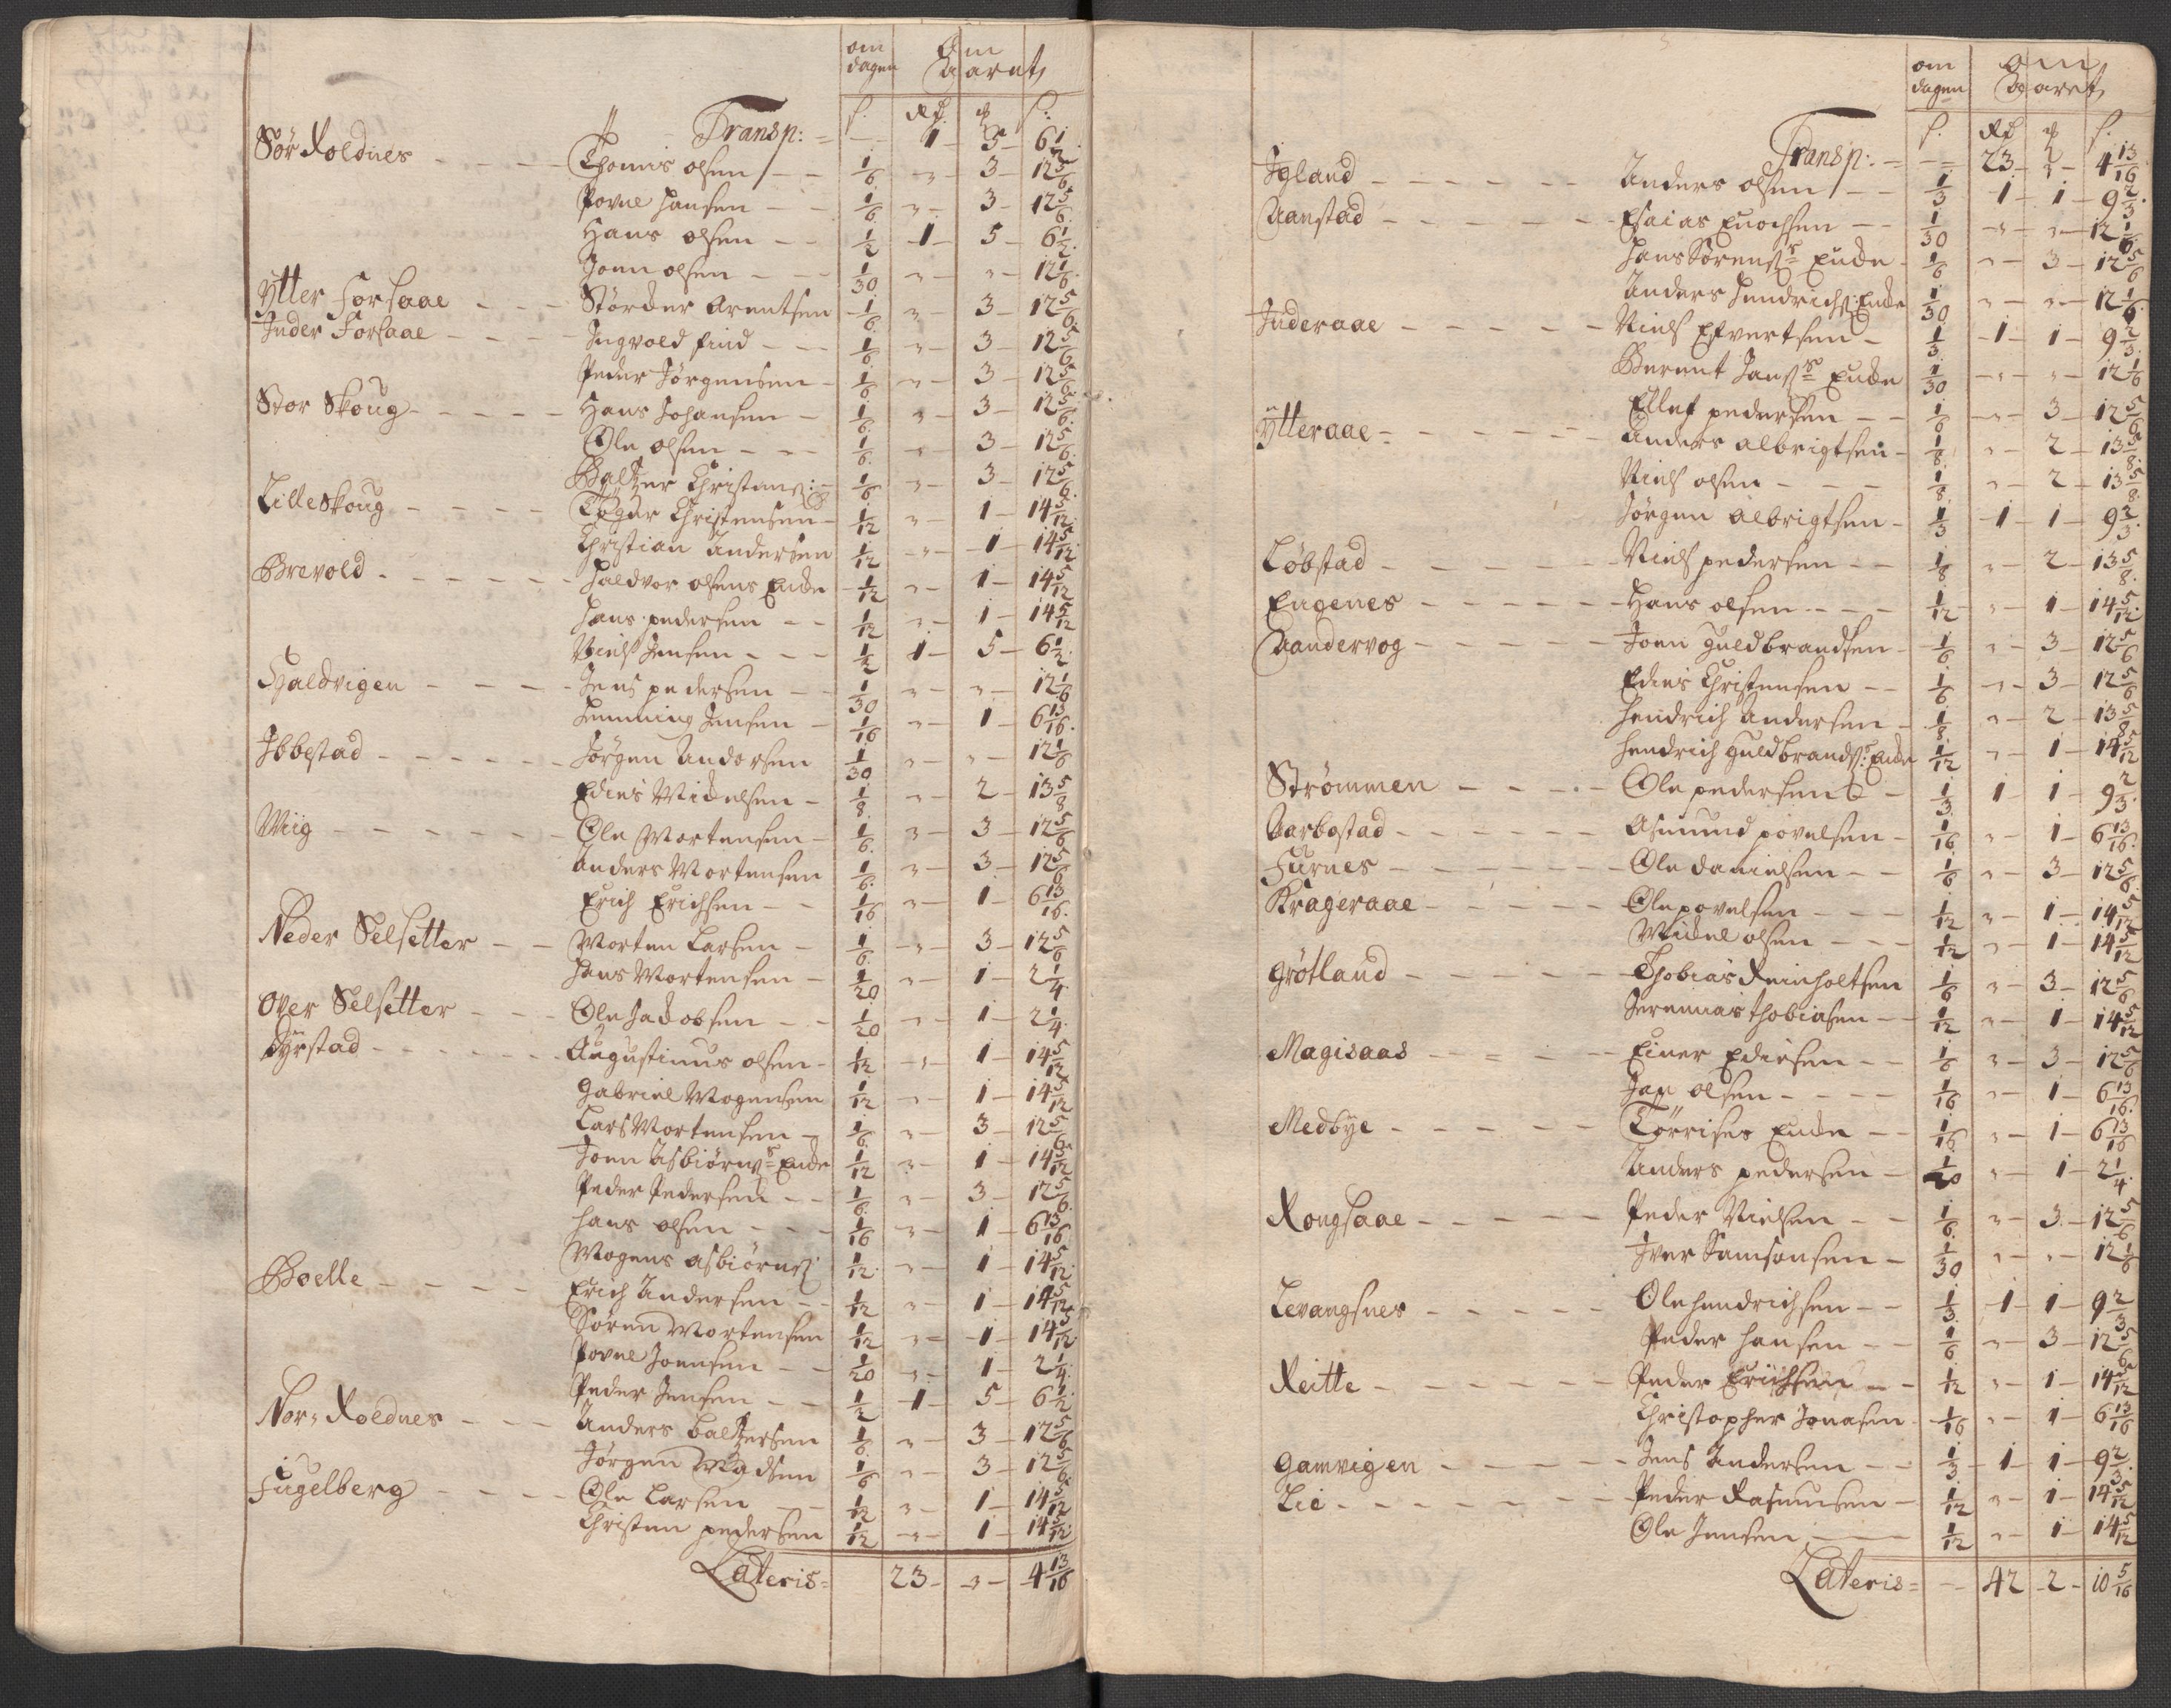 om Om
dagen Aaret
s. Rd ₰ s.
Transp: = — 1 — 5 — 6 1/2
Sör Roldnes — — — Thomis olsen — — 1/6 " — 3 — 12 5/6
Povel Hansen — — 1/6 " — 3 — 12 5/6
Hans olsen — — 1/2 — 1 — 5 — 6 1/2
Joen olsen — — 1/30 " — " — 12 1/6
Ytter Forsaae — — — Störcker Arentsen 1/6 " — 3 — 12 5/6
Inder Forsaae — — — Ingvold find — — 1/6 " — 3 — 12 5/6
Peder Jörgensen — 1/6 " — 3 — 12 5/6
Stor Skoug — — — — Hans Johansen — 1/6 " — 3 — 12 5/6
Ole olsen — — — 1/6 " — 3 — 12 5/6
Baltzer Christens: — 1/6 " — 3 — 12 5/6
Lille Skoug — — — — Tøger Christensen — 1/12 " — 1 — 14 5/12
Christian Andersen 1/12 " — 1 — 14 5/12
Brevold — — — — — Haldvor olsens Encke 1/12 " — 1 — 14 5/12
Hans pedersen — — 1/12 " — 1 — 14 5/12
Niels Jensen — — — 1/2 1 — 5 — 6 1/2
Hjaldvigen — — — — Jens pedersen — — 1/30 " — " — 12 1/6
Hemming Jensen — 1/16 " — 1 — 6 13/16
Ibbestad — — — — — Jörgen Andersen 1/30 " — " — 12 1/6
Edies Mickelsen — 1/8 " — 2 — 13 5/8
Wiig — — — — — — Ole Mortensen — 1/6 " — 3 — 12 5/6
Anders Mortensen 1/6 " — 3 — 12 5/6
Erich Erichsen — — 1/16 " — 1 — 6 13/16
Neder Selsetter — — Morten Larsen — 1/6 " — 3 — 12 5/6
Hans Mortensen — 1/20 " — 1 — 2 1/4
Over Selsetter — — — Ole Jacobsen — — 1/20 " — 1 — 2 1/4
Dyrstad — — — — — Augustinus olsen — 1/12 " — 1 — 14 5/12
Gabriel Mogensen 1/12 " — 1 — 14 5/12
Lars Mortensen — 1/6 " — 3 — 12 5/6
Joen Asbiörns: Encke 1/12 " — 1 — 14 5/12
Peder Pedersen — — 1/6 " — 3 — 12 5/6
Hans olsen — — — 1/16 " — 1 — 6 13/16
Mogens asbiörns: 1/12 " — 1 — 14 5/12
Boelle — — — — Erich Andersen — — 1/12 " — 1 — 14 5/12
Sören Mortensen 1/12 " — 1 — 14 5/12
Povel Joensen — — 1/20 " — 1 — 2 1/4
Peder Jensen — — 1/2 — 1 — 5 — 6 1/2
Nor = Roldnes — — — Anders Baltzersen 1/6 " — 3 — 12 5/6
Jörgen Madsen 1/6 " — 3 — 12 5/6
Fugelberg — — — — Ole Larsen — — 1/12 " — 1 — 14 5/12
Christen pedersen 1/12 " — 1 — 14 5/12
Lateris = 23 — " — 4 13/16
om Om
dagen Aaret
s. Rd ₰ s.
Transp: = — 23 — " — 4 13/16
Igland — — — — — Anders olsen — — 1/3 1 — 1 — 9 2/3
Aanstad — — — — — Esaias Enochsen — — 1/30 " — " — 12 1/6
Hans Sörens: Encke — 1/6 " — 3 — 12 5/6
Anders Hendrichs: Encke 1/30 " — " — 12 1/6
Inderaae — — — — — Niels Efvertsen — 1/3 — 1 — 1 — 9 2/3
Berent Jans: Encke 1/30 " — " — 12 1/6
Ellef pedersen — — 1/6 " — 3 — 12 5/6
Ytteraae — — — — — Anders albrigtsen — 1/8 " — 2 — 13 5/8
Niels olsen — — — 1/8 " — 2 — 13 5/8
Jörgen albrigtsen — 1/3 — 1 — 1 — 9 2/3
Løbstad — — — — — Niels pedersen — — 1/8 " — 2 — 13 5/8
Engenes — — — — — Hans olsen — — — 1/12 " — 1 — 14 5/12
Aandervog — — — — — Joen Guldbrandsen — 1/6 " — 3 — 12 5/6
Edies Christensen — — 1/6 " — 3 — 12 5/6
Hendrich Andersen — 1/8 " — 2 — 13 5/8
Hendrich Guldbrands: Encke 1/12 " — 1 — 14 5/12
Strømmen — — — — Ole pedersen — 1/3 1 — 1 — 9 2/3
Aarbostad — — — — — Asmund povelsen — 1/16 " — 1 — 6 13/16
Furnes — — — — — — Ole danielsen — — 1/6 " — 3 — 12 5/6
Krageraae — — — — — Ole povelsen — — — 1/12 " — 1 — 14 5/12
Mickel olsen — — — 1/12 " — 1 — 14 5/12
Grötland — — — — — Thobias Reinholtsen 1/6 " — 3 — 12 5/6
Jeremias Thobiasen — — 1/12 " — 1 — 14 5/12
Magisaas — — — — Einer Ediesen — — 1/6 " — 3 — 12 5/6
Jan olsen — — — — 1/16 " — 1 — 6 13/16
Medbye — — — — — Törrises Encke — — 1/16 " — 1 — 6 13/16
Anders pedersen — 1/20 " — 1 — 2 1/4
Rongsaae — — — — — Peder Nielsen — — 1/6 " — 3 — 12 5/6
Iver Samsonsen — 1/30 " — " — 12 1/6
Levangsnes — — — — — Ole hendrichsen — — 1/3 — 1 — 1 — 9 2/3
Peder Hansen — — 1/6 " — 3 — 12 5/6
Reitte — — — — — — Peder Erichsen — — 1/12 " — 1 — 14 5/12
Christopher Jonasen 1/16 " — 1 — 6 13/16
Gamvigen — — — — — Jens Andersen — — 1/3 — 1 — 1 — 9 2/3
Lie — — — — — — — Peder Rasmusen — 1/12 " — 1 — 14 5/12
Ole Jensen — — 1/12 " — 1 — 14 5/12
Lateris = — 42 — 2 — 10 5/16